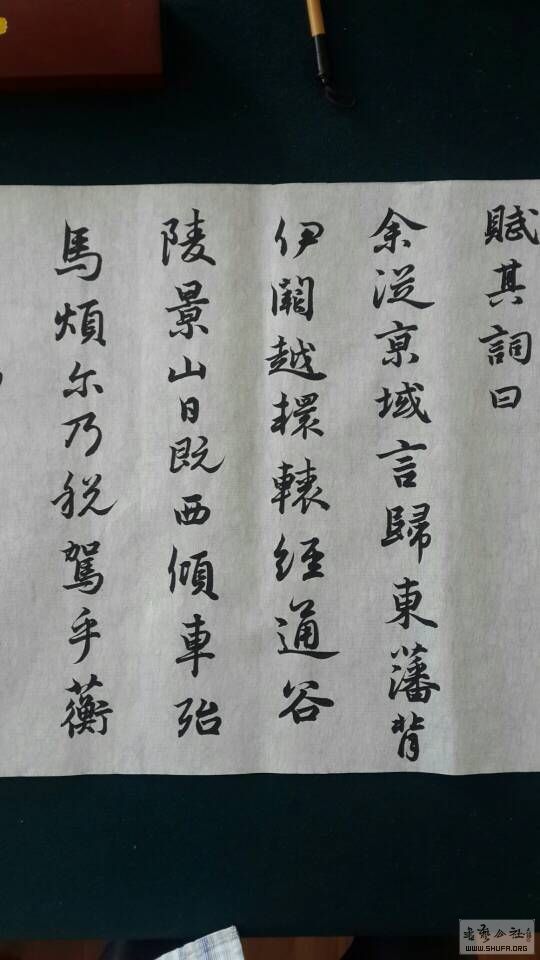 賦其詞曰
余從京域言歸東藩背
伊闕越轘轅經通谷
陵景山日既西傾車殆
馬煩尔乃税駕乎蘅
书艺公社
WWW.SHUFA.ORG